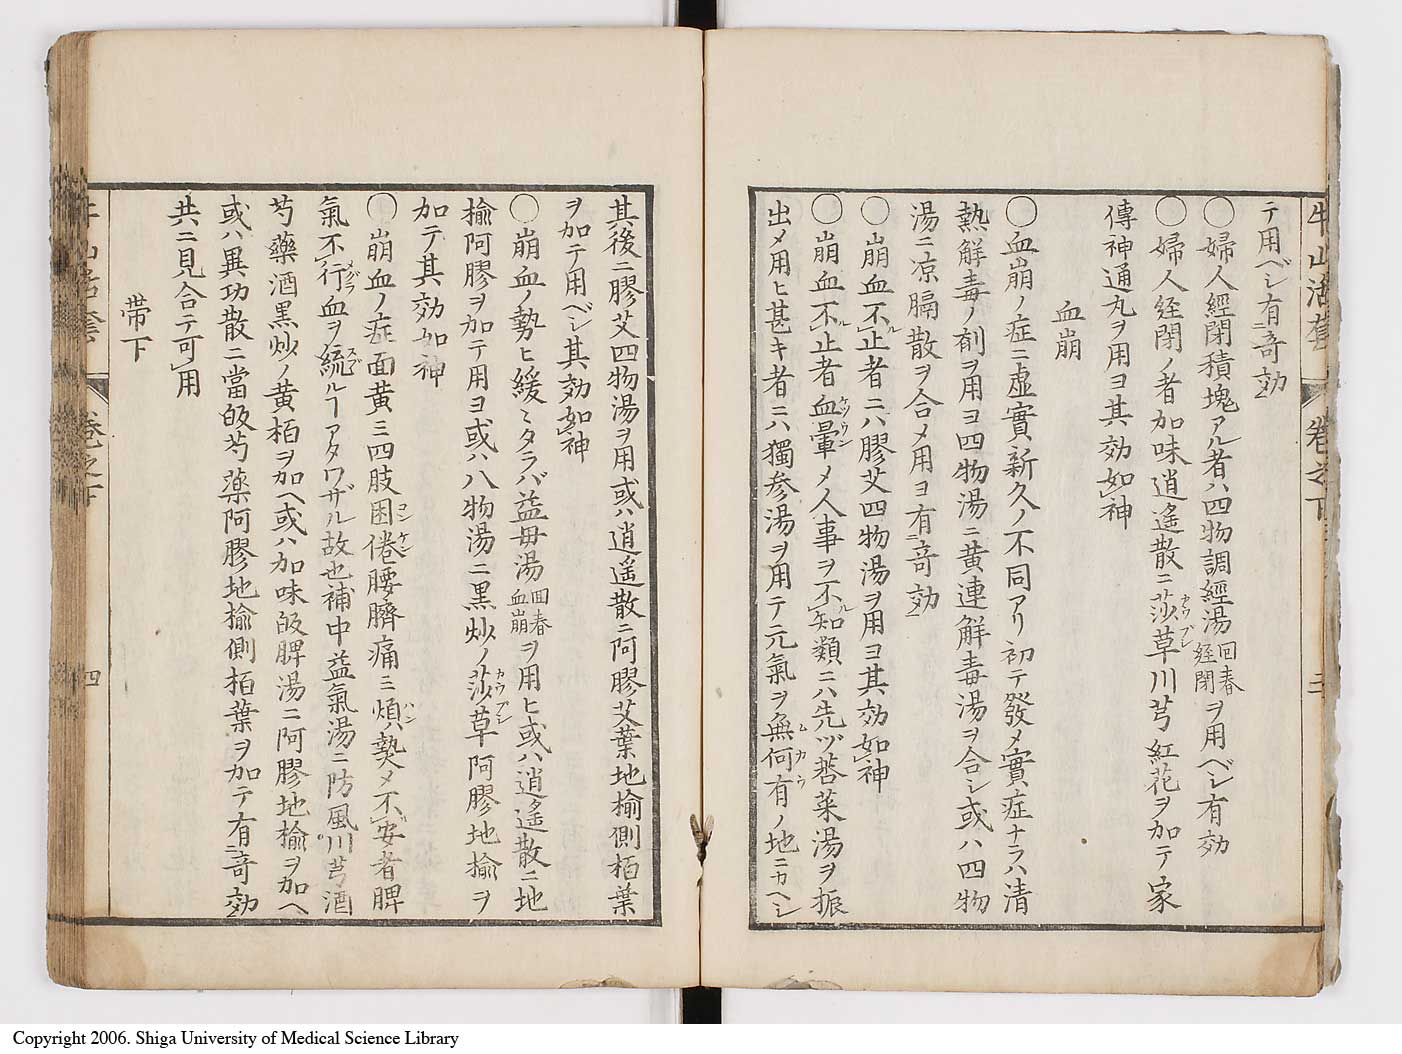 テ用ベシ有奇効
○婦人經閉積塊アル者ハ四物調經湯回春経閉ヲ用ベシ有効
○婦人経閉ノ者加味逍遙散ニ莎草川芎紅花ヲ加テ家
傳神通丸ヲ用ヨ其効如神
血崩
○血崩ノ症ニ虚實新久ノ不同アリ初テ發メ實症ナラハ清
熱解毒ノ剤ヲ用ヨ四物湯ニ黄連解毒湯ヲ合シ或ハ四物
湯ニ凉膈散ヲ合メ用ヨ有奇効
○崩血不止者ニハ膠艾四物湯ヲ用ヨ其効如神
○崩血不止者血暈メ人事ヲ不知類ニハ先ヅ莟菜湯ヲ振
出メ用ヒ甚キ者ニハ獨參湯ヲ用テ元氣ヲ無何有ノ地ニカヘシ
其後ニ膠艾四物湯ヲ用或ハ逍遥散ニ阿膠艾葉地榆側栢葉
ヲ加テ用ベシ其効如神
○崩血ノ勢ヒ緩ミタラバ益毋湯回春血崩ヲ用ヒ或ハ逍遙散ニ地
榆阿膠ヲ加テ用ヨ或ハ八物湯ニ黒炒ノ莎草阿膠地榆ヲ
加テ其効如神
○崩血ノ症面黄ミ四肢困倦腰臍痛ミ煩熱メ不安者脾
氣不行血ヲ統ルヿアタワザル故也補中益氣湯ニ防風川芎酒
芍藥酒黒炒ノ黄栢ヲ加ヘ或ハ加味皈脾湯ニ阿膠地榆ヲ加ヘ
或ハ異功散ニ當皈芍藥阿膠地榆側栢葉ヲ加テ有奇効
共ニ見合テ可用
帯下
牛山活套
卷之下
四
Copyright 2006. Shiga University of Medical Science Library